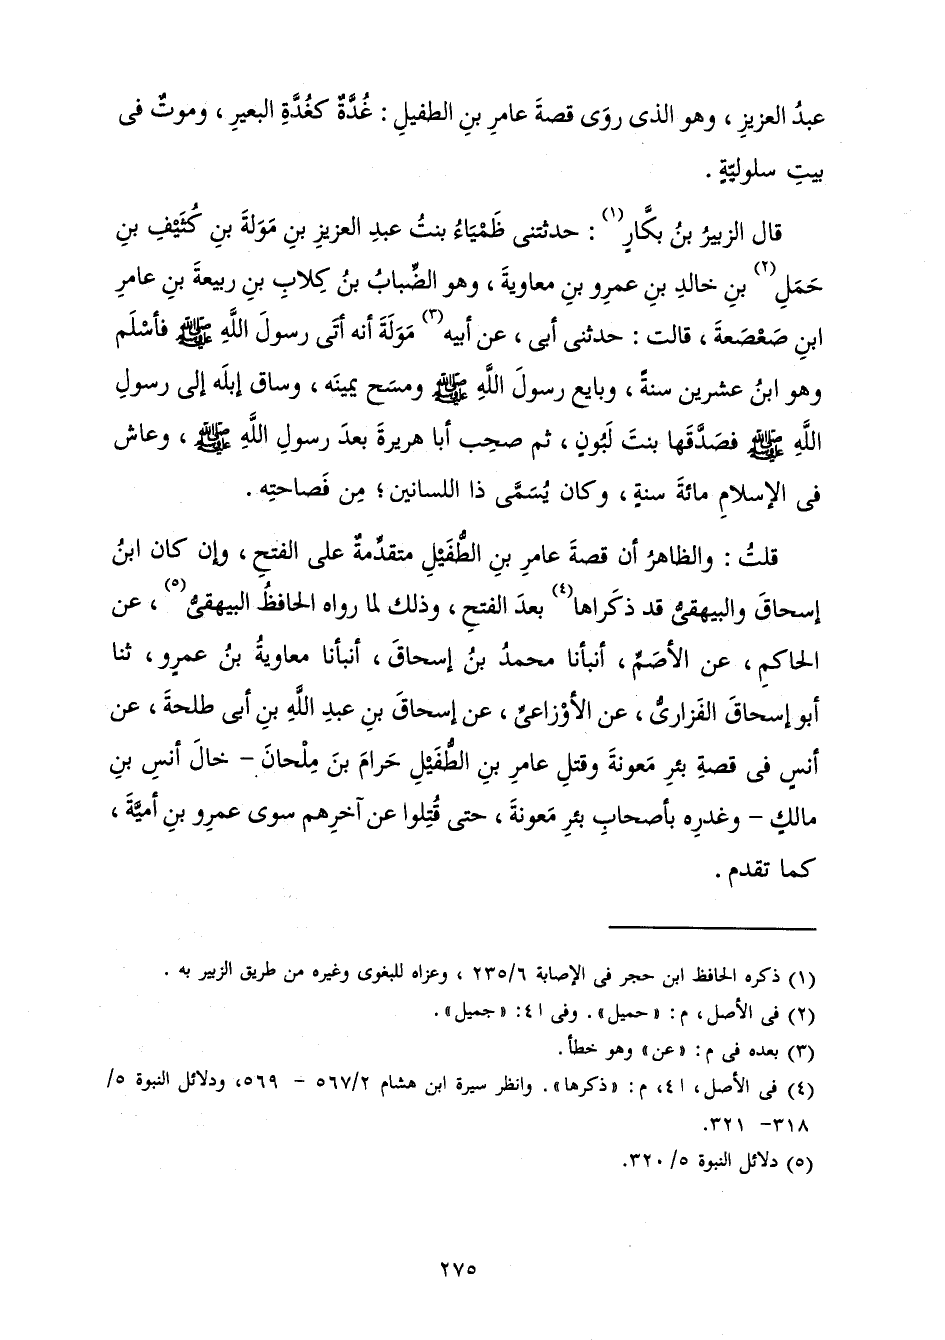 عبدُ العزيزِ ، وهو الذى روَى قصةَ عامرِ بنِ الطفيلِ : غُدَّةٌ كغُدَّةِ البعيرِ ، وموتٌ فى
بيتِ سلوليّةٍ .
قال الزبيرُ بنُ بكَّارٍ(١) : حدثتنى ظَمْيَاءُ بنتُ عبدِ العزيزِ بنِ مَوَلةَ بنِ كُثَيْفِ بنِ
حَمَلِ(٢) بنِ خالدِ بنِ عمرِو بنِ معاويةَ ، وهو الضِّبابُ بنُ كِلابِ بنِ ربيعةَ بنِ عامرِ
ابنِ صَعْصَعةَ ، قالت : حدثنى أبى ، عن أبيه(٣) مَوَلَةَ أنه أتَى رسولَ اللَّهِ ﷺ فأسْلَم
وهو ابنُ عشرين سنةً ، وبايع رسولَ اللَّهِ ﷺ ومسَح يمينَه ، وساق إبلَه إلى رسولِ
اللَّهِ ﷺ فصَدَّقَها بنتَ لَبُونٍ ، ثم صحِب أبا هريرةَ بعدَ رسولِ اللَّهِ ﷺ ، وعاش
فى الإسلامِ مائةَ سنةٍ ، وكان يُسَمَّى ذا اللسانين ؛ مِن فَصاحتِه .
قلتُ : والظاهرُ أن قصةَ عامرِ بنِ الطُّفَيْلِ متقدِّمةٌ على الفتحِ ، وإن كان ابنُ
إسحاقَ والبيهقىُّ قد ذكَراها(٤) بعدَ الفتحِ ، وذلك لما رواه الحافظُ البيهقىُّ(٥) ، عن
الحاكمِ ، عن الأصَمِّ ، أنبأنا محمدُ بنُ إسحاقَ ، أنبأنا معاويةُ بنُ عمرٍو ، ثنا
أبو إسحاقَ الفَزارىُّ ، عن الأوْزاعىِّ ، عن إسحاقَ بنِ عبدِ اللَّهِ بنِ أبى طلحةَ ، عن
أنسٍ فى قصةِ بئرِ مَعونةَ وقتلِ عامرِ بنِ الطُّفَيْلِ حَرامَ بنَ مِلْحانَ - خالَ أنسِ بنِ
مالكٍ - وغدرِه بأصحابِ بئرِ مَعونةَ ، حتى قُتِلوا عن آخرِهم سوى عمرِو بنِ أميَّةَ ،
كما تقدم .
(١) ذكره الحافظ ابن حجر فى الإصابة ٢٣٥/٦ ، وعزاه للبغوى وغيره من طريق الزبير به .
(٢) فى الأصل ، م : «حميل» . وفى ٤١ : «جميل» .
(٣) بعده فى م : «عن» وهو خطأ .
(٤) فى الأصل ، ٤١ ، م : «ذكرها» . وانظر سيرة ابن هشام ٥٦٧/٢ - ٥٦٩ ، ودلائل النبوة ٥/
٣١٨- ٣٢١.
(٥) دلائل النبوة ٥/ ٣٢٠.
٢٧٥